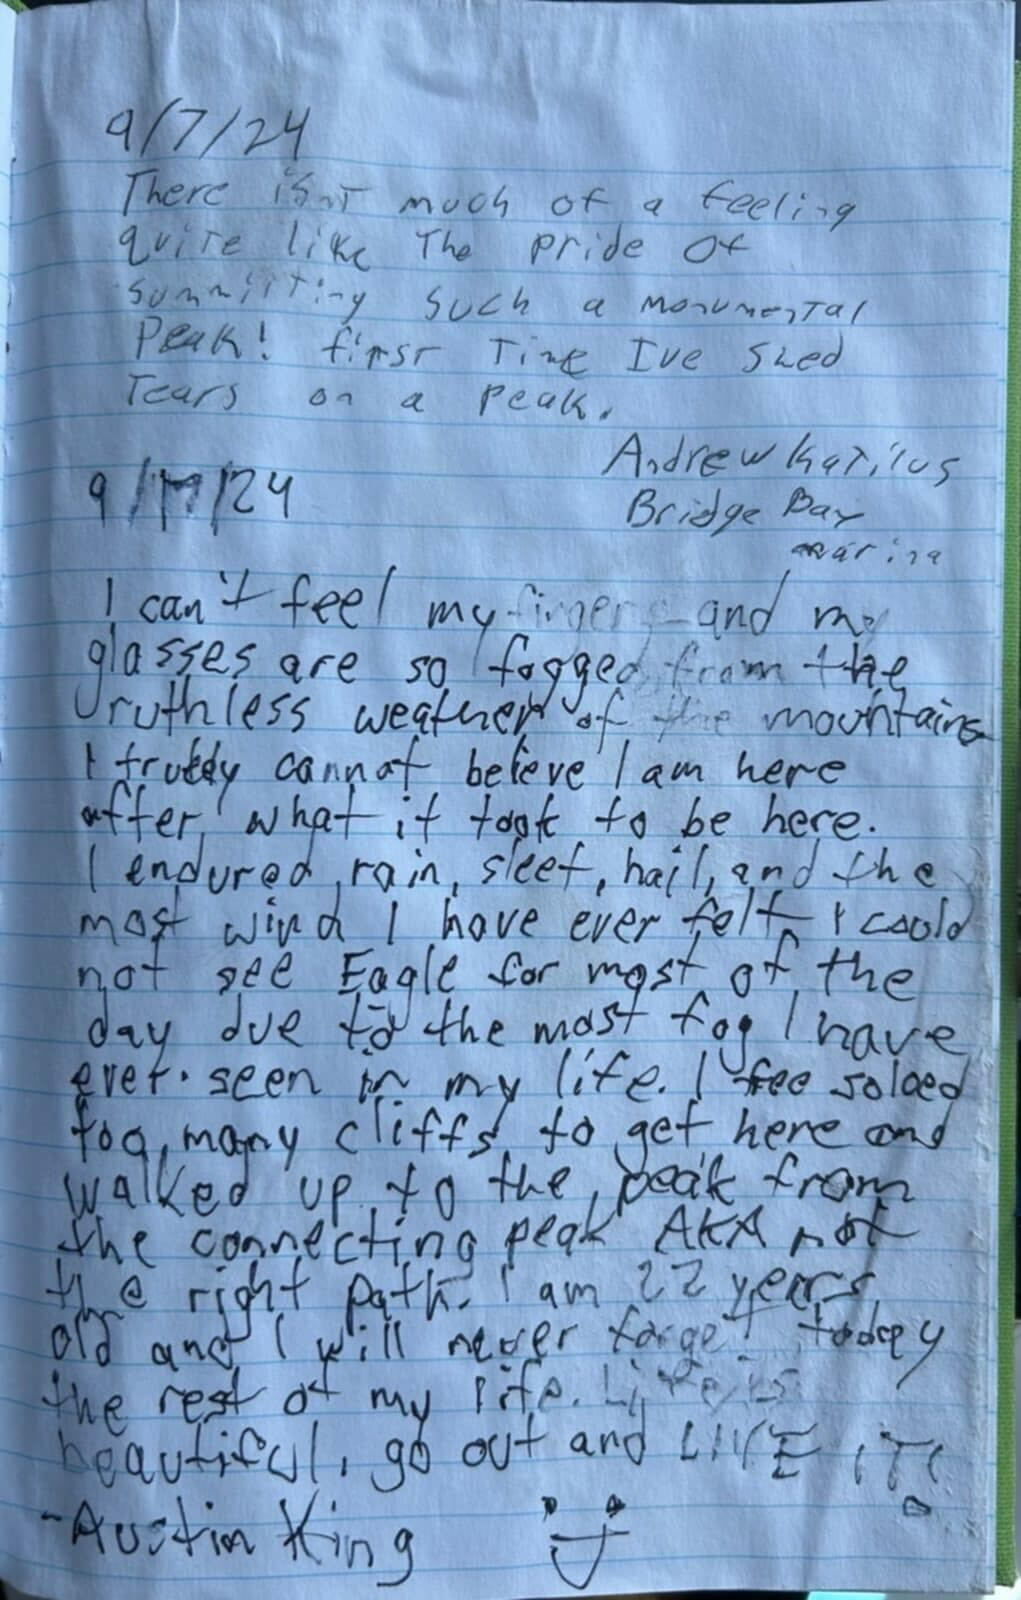 9/7/24
There isnt much of a feeling
quite like the pride of
summitting such a monumental
Peak! first time Ive shed
Tears on a peak.
Andrew Katilus
Bridge Bay
marina
9/17/24
I can't feel my fingers and my
glasses are so fogged from the
ruthless weather of the mountains
I truly cannot believe I am here
after what it took to be here.
I endured rain, sleet, hail, and the
most wind I have ever felt I could
not see Eagle for most of the
day due to the most fog I have
ever seen in my life. I free soloed
too many cliffs to get here and
walked up to the peak from
the connecting peak AKA not
the right path. I am 22 years
old and I will never forget today
the rest of my life. Life is
beautiful, go out and LIVE IT!
-Austin King